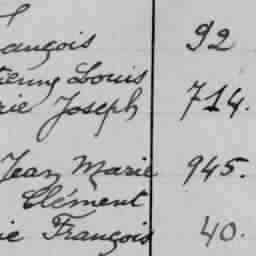 ançois 92
ienne Louis
rie Joseph 714.
Jean Marie 945.
Clément
ie François 40.